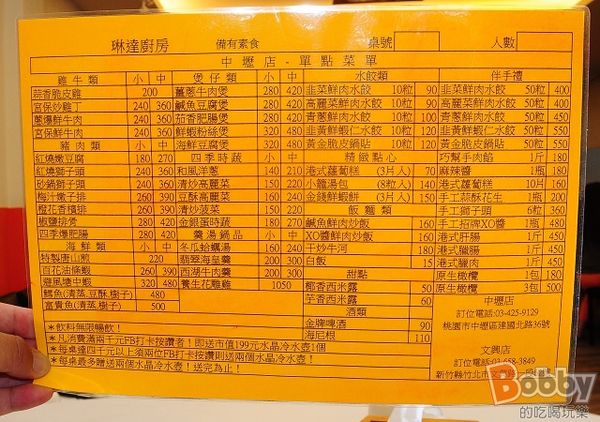 琳達廚房 備有素食 桌號 人數
中壢店 - 單點菜單
雞牛類 小 中
蒜香脆皮雞 200
宮保炒雞丁 240 360
蔥爆鮮牛肉 240 360
宮保鮮牛肉 240 360
豬肉類 小 中
紅燒嫩豆腐 180 270
紅燒獅子頭 240 360
砂鍋獅子頭 240 360
梅汁嫩子排 260 390
橙花香檳排 260 390
椒鹽排骨 280 420
四季爆肥腸 280 420
海鮮類 小 中
特製唐山煎 220
百花油條蝦 260 390
避風塘中蝦 320 480
鱈魚(清蒸.豆酥.樹子) 480
富貴魚(清蒸.樹子) 500
煲仔類 小 中
薑蔥牛肉煲 280 420
鹹魚豆腐煲 280 420
茄香肥腸煲 280 420
鮮蝦粉絲煲 320 480
海鮮豆腐煲 320 480
四季時蔬 小 中
和風洋蔥 140 210
清炒高麗菜 150 220
豆酥高麗菜 160 240
清炒菠菜 150 220
金銀蛋時蔬 180 270
羹湯鍋品 小 中
冬瓜蛤蠣湯 160 240
翡翠海皇羹 200 300
西湖牛肉羹 200 300
養生花雕雞 1050
水餃類
韭菜鮮肉水餃 10粒 90
高麗菜鮮肉水餃 10粒 90
青蔥鮮肉水餃 10粒 100
韭黃鮮蝦仁水餃 10粒 120
黃金脆皮鍋貼 10粒 100
精緻點心
港式蘿蔔糕 (3片入) 70
小籠湯包 (8粒入) 140
金錢鮮蝦餅 (3片入) 150
飯麵類
鹹魚鮮肉炒飯 160
XO醬鮮肉炒飯 170
干炒牛河 180
白飯 15
甜點
椰香西米露 50
芋香西米露 60
酒類
金牌啤酒 90
海尼根 110
伴手禮
韭菜鮮肉水餃 50粒 400
高麗菜鮮肉水餃 50粒 400
青蔥鮮肉水餃 50粒 450
韭黃鮮蝦仁水餃 50粒 550
黃金脆皮鍋貼 50粒 450
巧幫手肉餡 1斤 180
麻辣醬 1瓶 180
港式蘿蔔糕 10片 160
手工蒜酥花生 1瓶 200
手工獅子頭 6粒 360
手工招牌XO醬 1瓶 480
港式肝腸 1斤 450
港式臘腸 1斤 450
港式臘肉 1斤 450
原生橄欖 1包 180
原生橄欖 3包 500
中壢店
訂位電話:03-425-9129
桃園市中壢區建國北路36號
文興店
訂位電話:03-658-3849
新竹縣竹北市文興路一段
*飲料無限暢飲!
*凡消費滿兩千元FB打卡按讚者!即送市值199元水晶冷水壺1個
*每桌達四千元以上須兩位FB打卡按讚則送兩個水晶冷水壺!
*每桌最多贈送兩個水晶冷水壺!送完為止!
Bobby
的吃喝玩樂